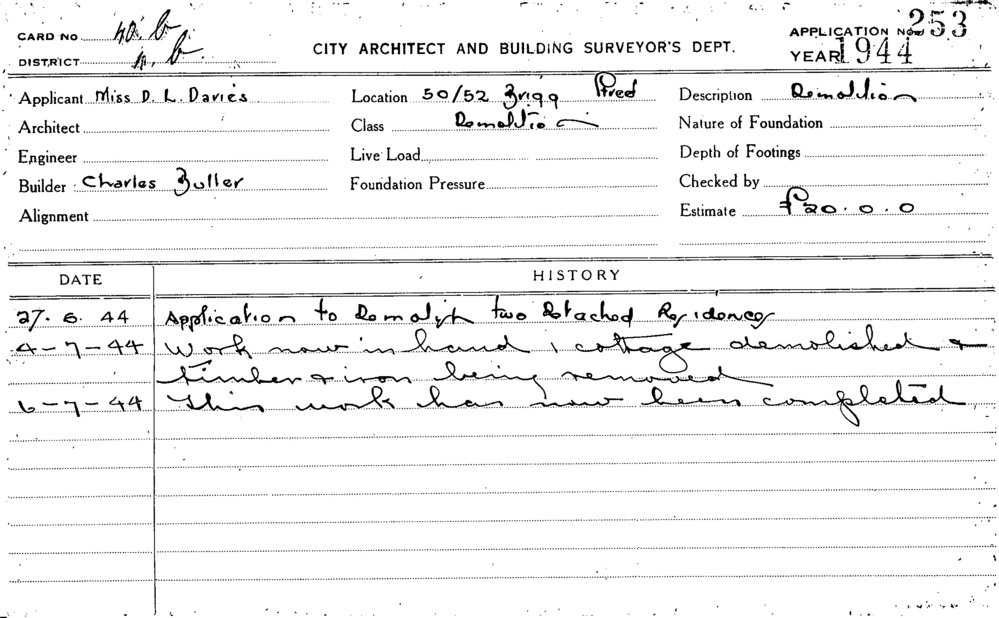 CARD No 40. b. APPLICATION No 253
DISTRICT n. b. CITY ARCHITECT AND BUILDING SURVEYOR'S DEPT. YEAR 1944
Applicant Miss D. L. Davies Location 50/52 Brigg Street Description Demolition
Architect Class Demolition Nature of Foundation
Engineer Live Load Depth of Footings
Builder Charles Buller Foundation Pressure Checked by
Alignment Estimate £20.0.0
DATE HISTORY
27.6.44 Application to Demolish two Detached Residences
4-7-44 Work now in hand 1 cottage demolished &
timber & iron being removed
6-7-44 This work has now been completed